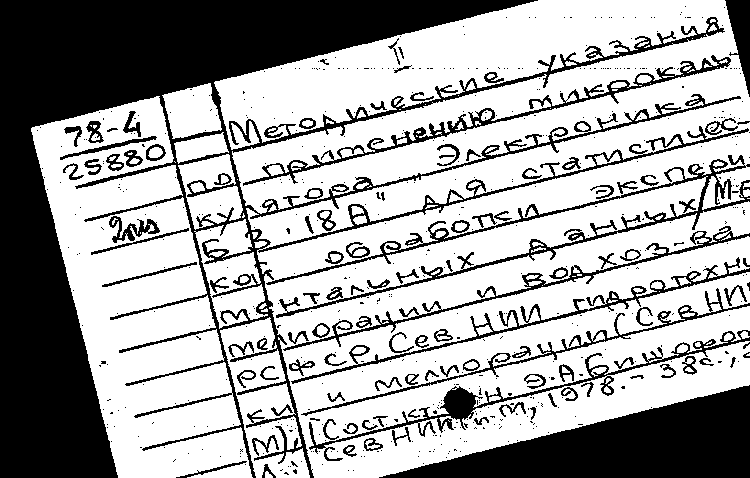 II
78-4
25880
2 экз
Методические указания
по применению микрокаль-
кулятора „Электроника
Б 3-18А" для статистичес-
кой обработки экспери-
ментальных данных/М-во
мелиорации и вод. хоз-ва
РСФСР, Сев. НИИ гидротехни
ки и мелиорации (СевНИИ
М), [Сост. кт. н. Э.А. Бишоф
СевНИИГиМ, 1978.- 38с.;